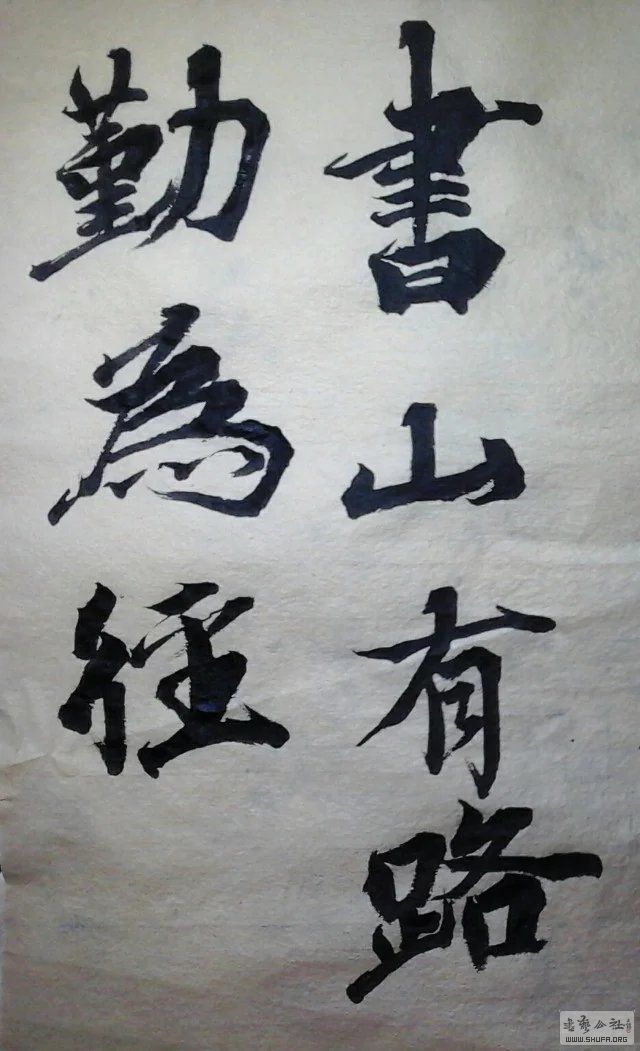 書山有路
勤為徑
WWW.SHUFA.ORG